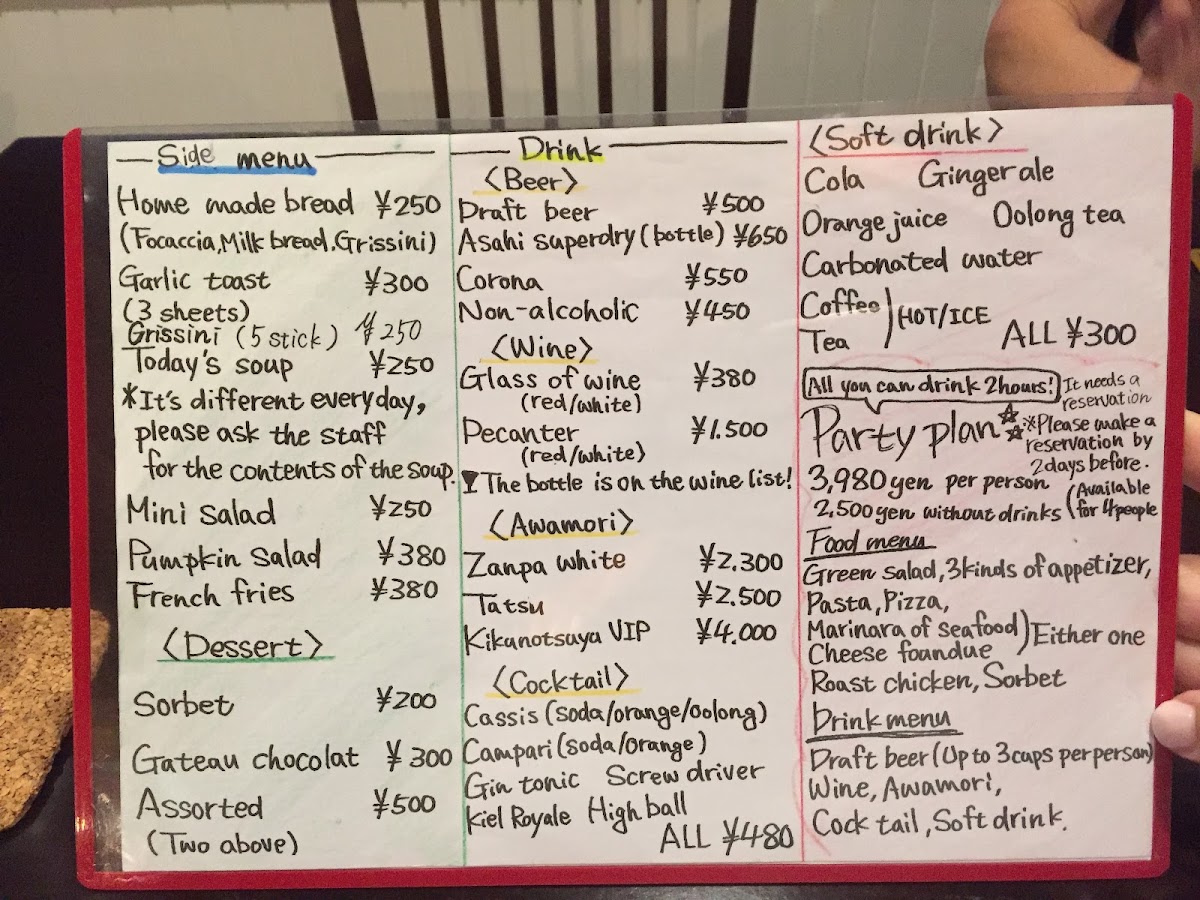 Side menu
Home made bread ¥250
(Focaccia, Milk bread. Grissini)
Garlic toast ¥300
(3 sheets)
Grissini (5 stick) ¥250
Today's soup ¥250
*It's different everyday,
please ask the staff
for the contents of the soup.
Mini salad ¥250
Pumpkin salad ¥380
French fries ¥380
〈Dessert〉
Sorbet ¥200
Gateau chocolat ¥300
Assorted ¥500
(Two above)
Drink
〈Beer〉
Draft beer ¥500
Asahi superdry (bottle) ¥650
Corona ¥550
Non-alcoholic ¥450
〈Wine〉
Glass of wine ¥380
(red/white)
Pecanter ¥1.500
(red/white)
The bottle is on the wine list!
〈Awamori〉
Zanpa white ¥2.300
Tatsu ¥2.500
Kikunotsuyu VIP ¥4.000
〈Cocktail〉
Cassis (soda/orange/oolong)
Campari (soda/orange)
Gin tonic Screw driver
Kiel Royale High ball
ALL ¥480
〈Soft drink〉
Cola Ginger ale
Orange juice Oolong tea
Carbonated water
Coffee
Tea ) HOT/ICE
ALL ¥300
All you can drink 2hours!
It needs a
reservation
Party plan☆☆
※Please make a
reservation by
2days before.
3,980 yen per person
2,500 yen without drinks
(Available
for 4 people
Food menu
Green salad, 3kinds of appetizer,
Pasta, Pizza,
Marinara of seafood
Cheese foundue ) Either one
Roast chicken, Sorbet
Drink menu
Draft beer (Up to 3cups per person)
Wine, Awamori,
Cock tail, Soft drink.